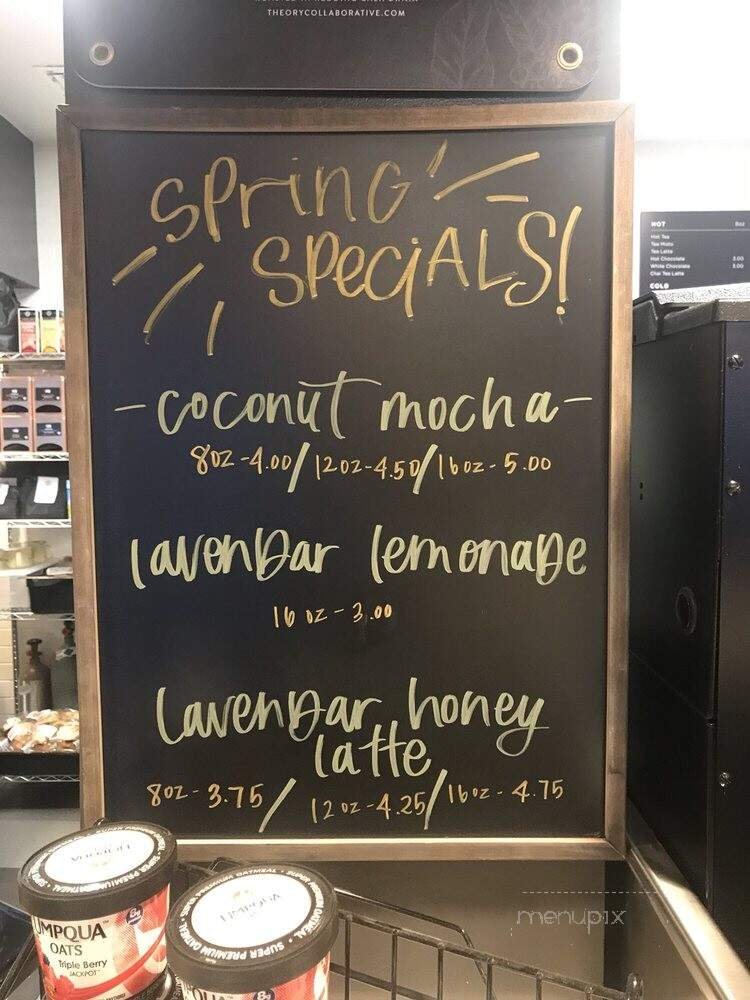 THEORYCOLLABORATIVE.COM
SPrinG
SPeciALS!
-coconut mocha-
8oz-4.00/12oz-4.50/16oz-5.00
lavenDar lemonaDe
16 oz-3.00
LavenDar honey
latte
8oz-3.75/12oz-4.25/16oz-4.75
HOT 8oz
Hot Tea
Tea Misto
Tea Latte
Hot Chocolate 3.00
White Chocolate 3.00
Chai Tea Latte
COLD
UMPQUA
SUPER PREMIUM OATMEAL
UMPQUA
OATS
Triple Berry
JACKPOT
UMPQUA
SUPER PREMIUM OATMEAL
menupix